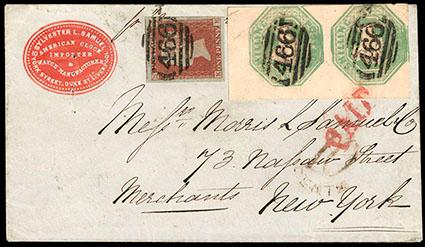 SYLVESTER L. SAMUEL
AMERICAN CLOCK
IMPORTER
&
WATCH MANUFACTURER
YORK STREET, DUKE ST LIVERPOOL
466
ONE PENNY
466
466
SHILLING
PAID
Messrs Morris L Samuel & Co
73 Nassau Street
Merchants New York